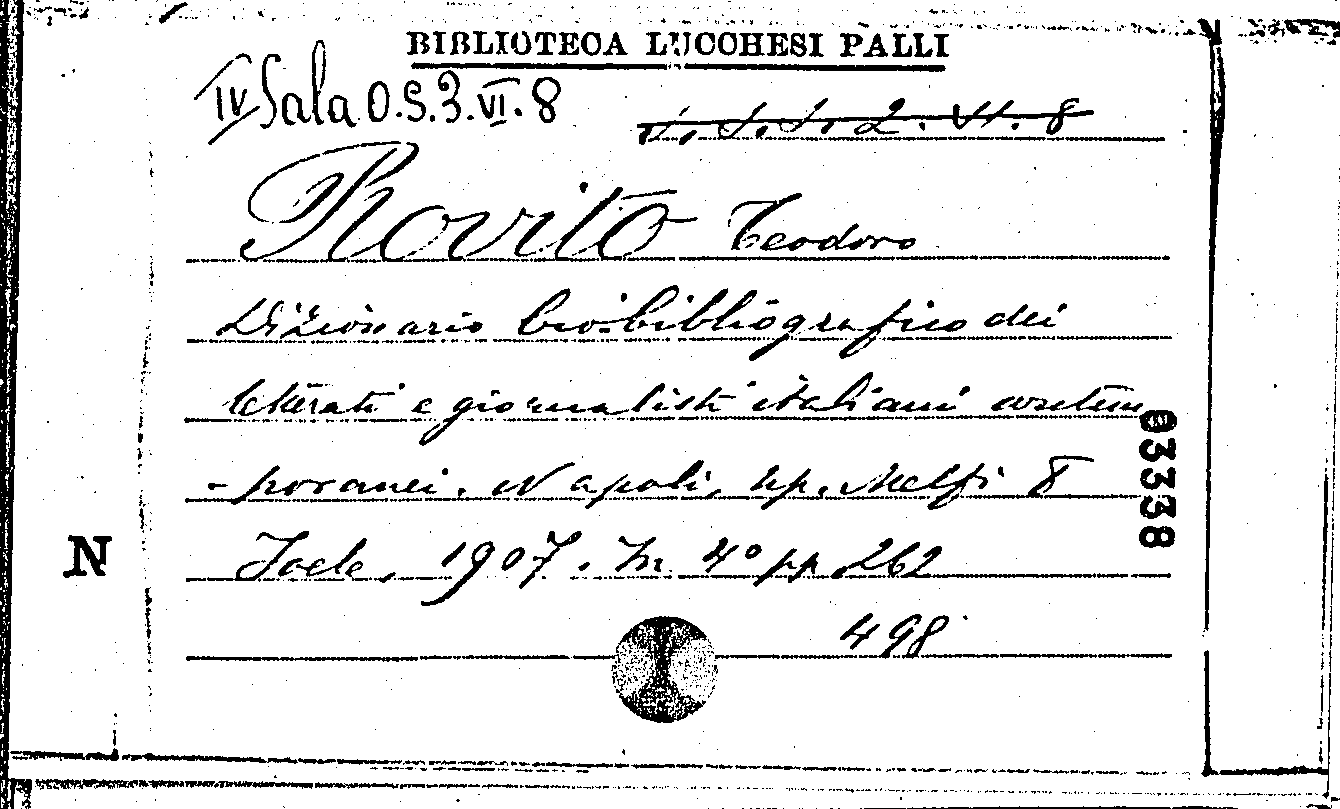 BIBLIOTECA LUCCHESI PALLI
IV Sala O.S.3.VI.8
S. S. S. 2. VI. 8
Rovito Teodoro
Dizionario bio-bibliografico dei
letterati e giornalisti italiani contem
- poranei. Napoli, tip. Melfi &
Joele, 1907. In 4° pp. 262
498
N
03338